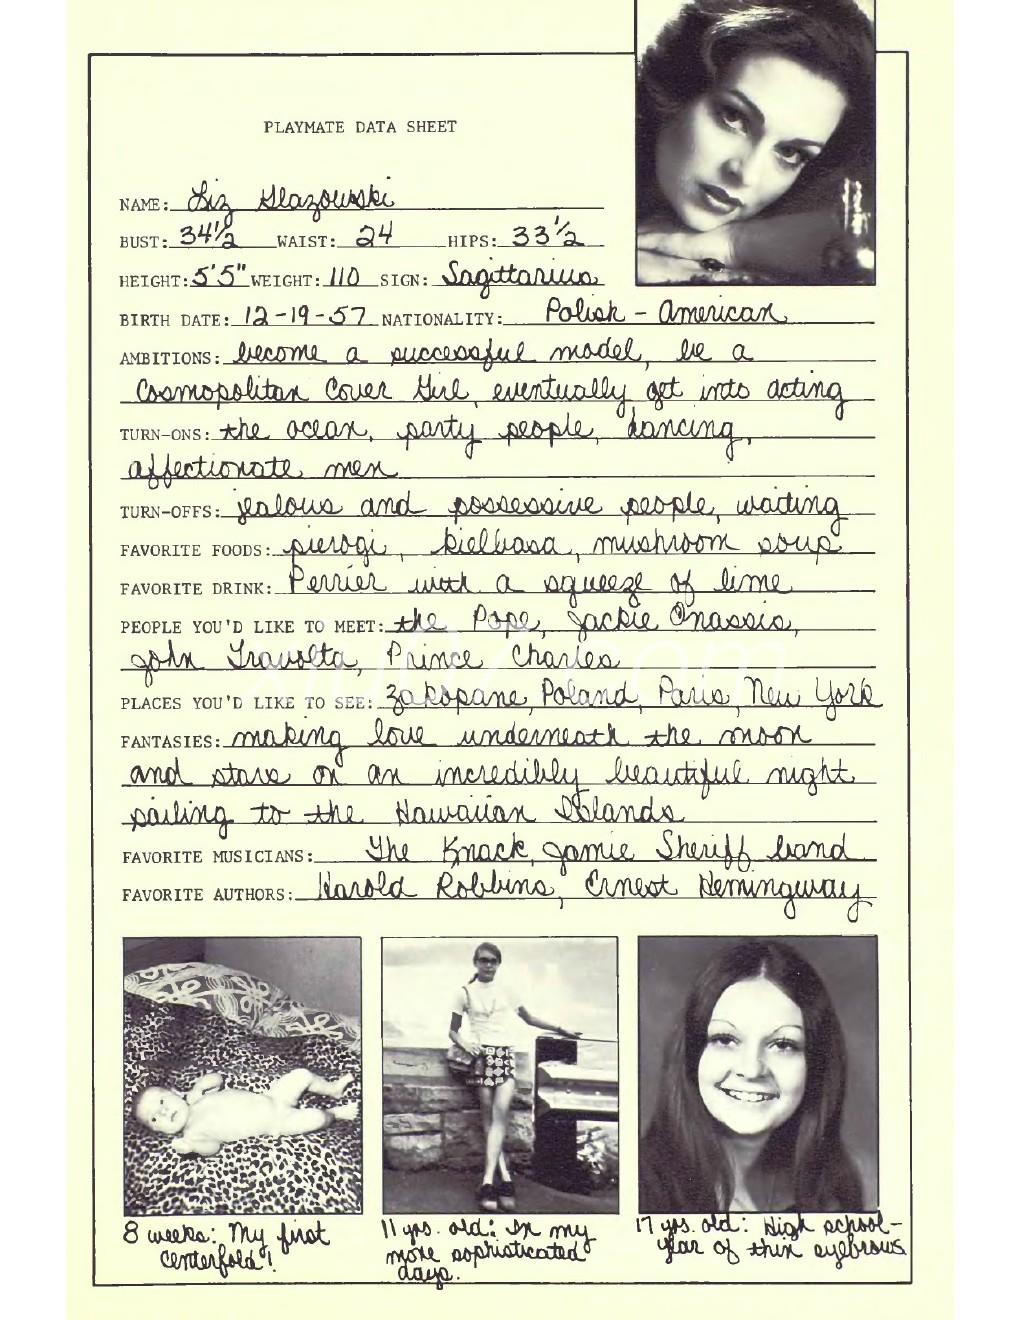 PLAYMATE DATA SHEET
NAME: Liz Glazowski
BUST: 34 1/2 WAIST: 24 HIPS: 33 1/2
HEIGHT: 5'5" WEIGHT: 110 SIGN: Sagittarius
BIRTH DATE: 12-19-57 NATIONALITY: Polish - American
AMBITIONS: become a successful model, be a
Cosmopolitan Cover Girl, eventually get into acting
TURN-ONS: the ocean, party people, dancing,
affectionate men
TURN-OFFS: jealous and possessive people, waiting
FAVORITE FOODS: pierogi, kielbasa, mushroom soup
FAVORITE DRINK: Perrier with a squeeze of lime
PEOPLE YOU'D LIKE TO MEET: the Pope, Jackie Onassis,
John Travolta, Prince Charles
PLACES YOU'D LIKE TO SEE: Zakopane, Poland, Paris, New York
FANTASIES: making love underneath the moon
and stars on an incredibly beautiful night
sailing to the Hawaiian Islands
FAVORITE MUSICIANS: The Knack, Jamie Sheriff band
FAVORITE AUTHORS: Harold Robbins, Ernest Hemingway
8 weeks: My first
centerfold!
11 yrs. old: In my
more sophisticated
days.
17 yrs. old: High school-
year of thin eyebrows